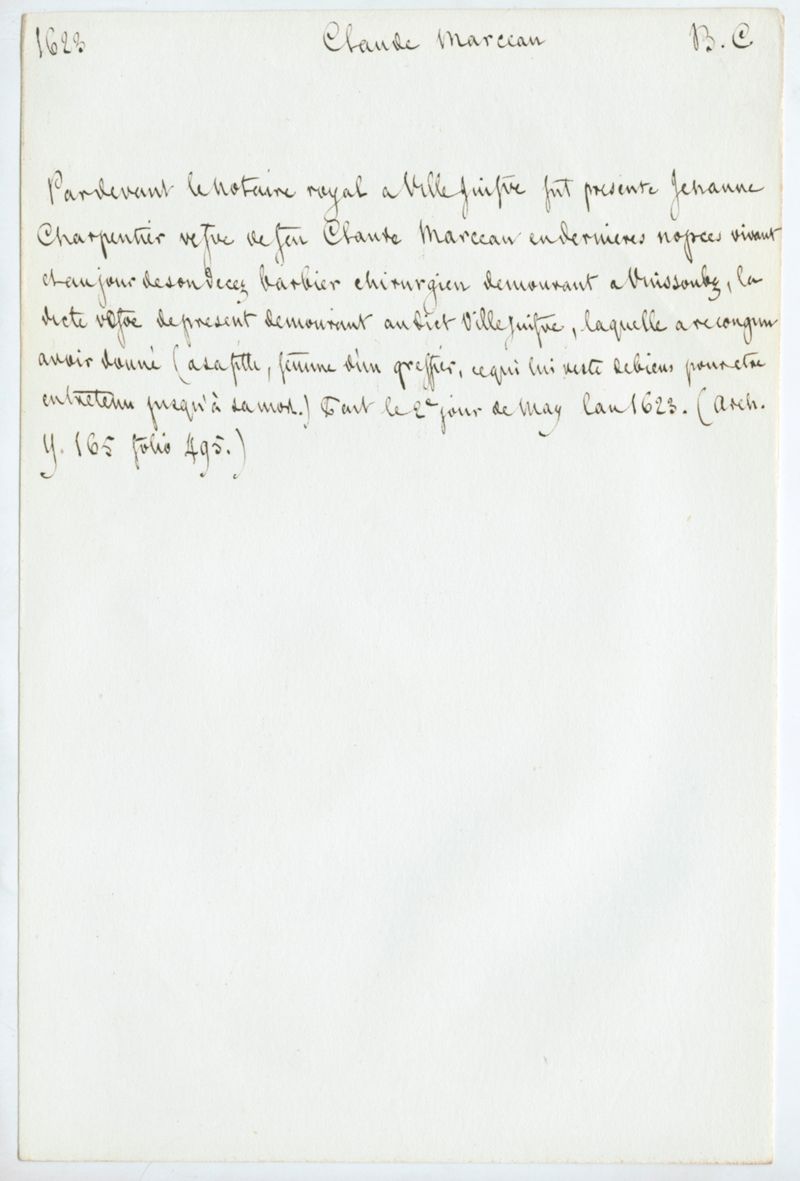 1623 Claude Marceau B. C
Pardevant le notaire royal a Ville Juifve fut presente Jehanne
Charpentier vefve de feu Claude Marceau en dernieres nopces vivant
et au jour de son decez barbier chirurgien demourant a Vuissoubz, la
dicte vefve de present demourant au dict Ville Juifve, laquelle a recongnu
avoir donné (a sa fille, femme d'un greffier, ce qui lui reste de biens pour etre
entretenu jusqu'à sa mort.) Fait le 2e jour de May lan 1623. (Arch.
Y. 165 folio 495.)